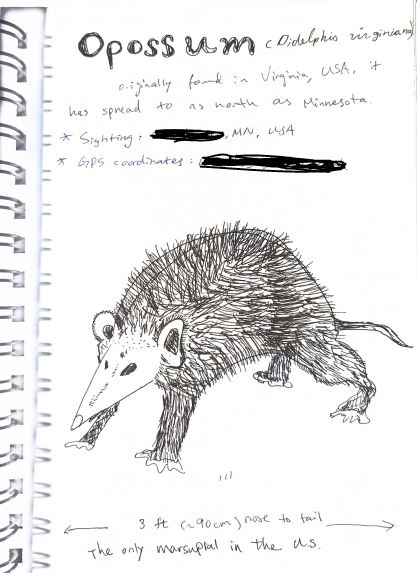 Opossum (Didelphis virginiana)
originally found in Virginia, USA, it
has spread to as north as Minnesota.
* Sighting: , MN, USA
* GPS coordinates:
3 ft (~90cm) nose to tail
The only marsupial in the U.S.